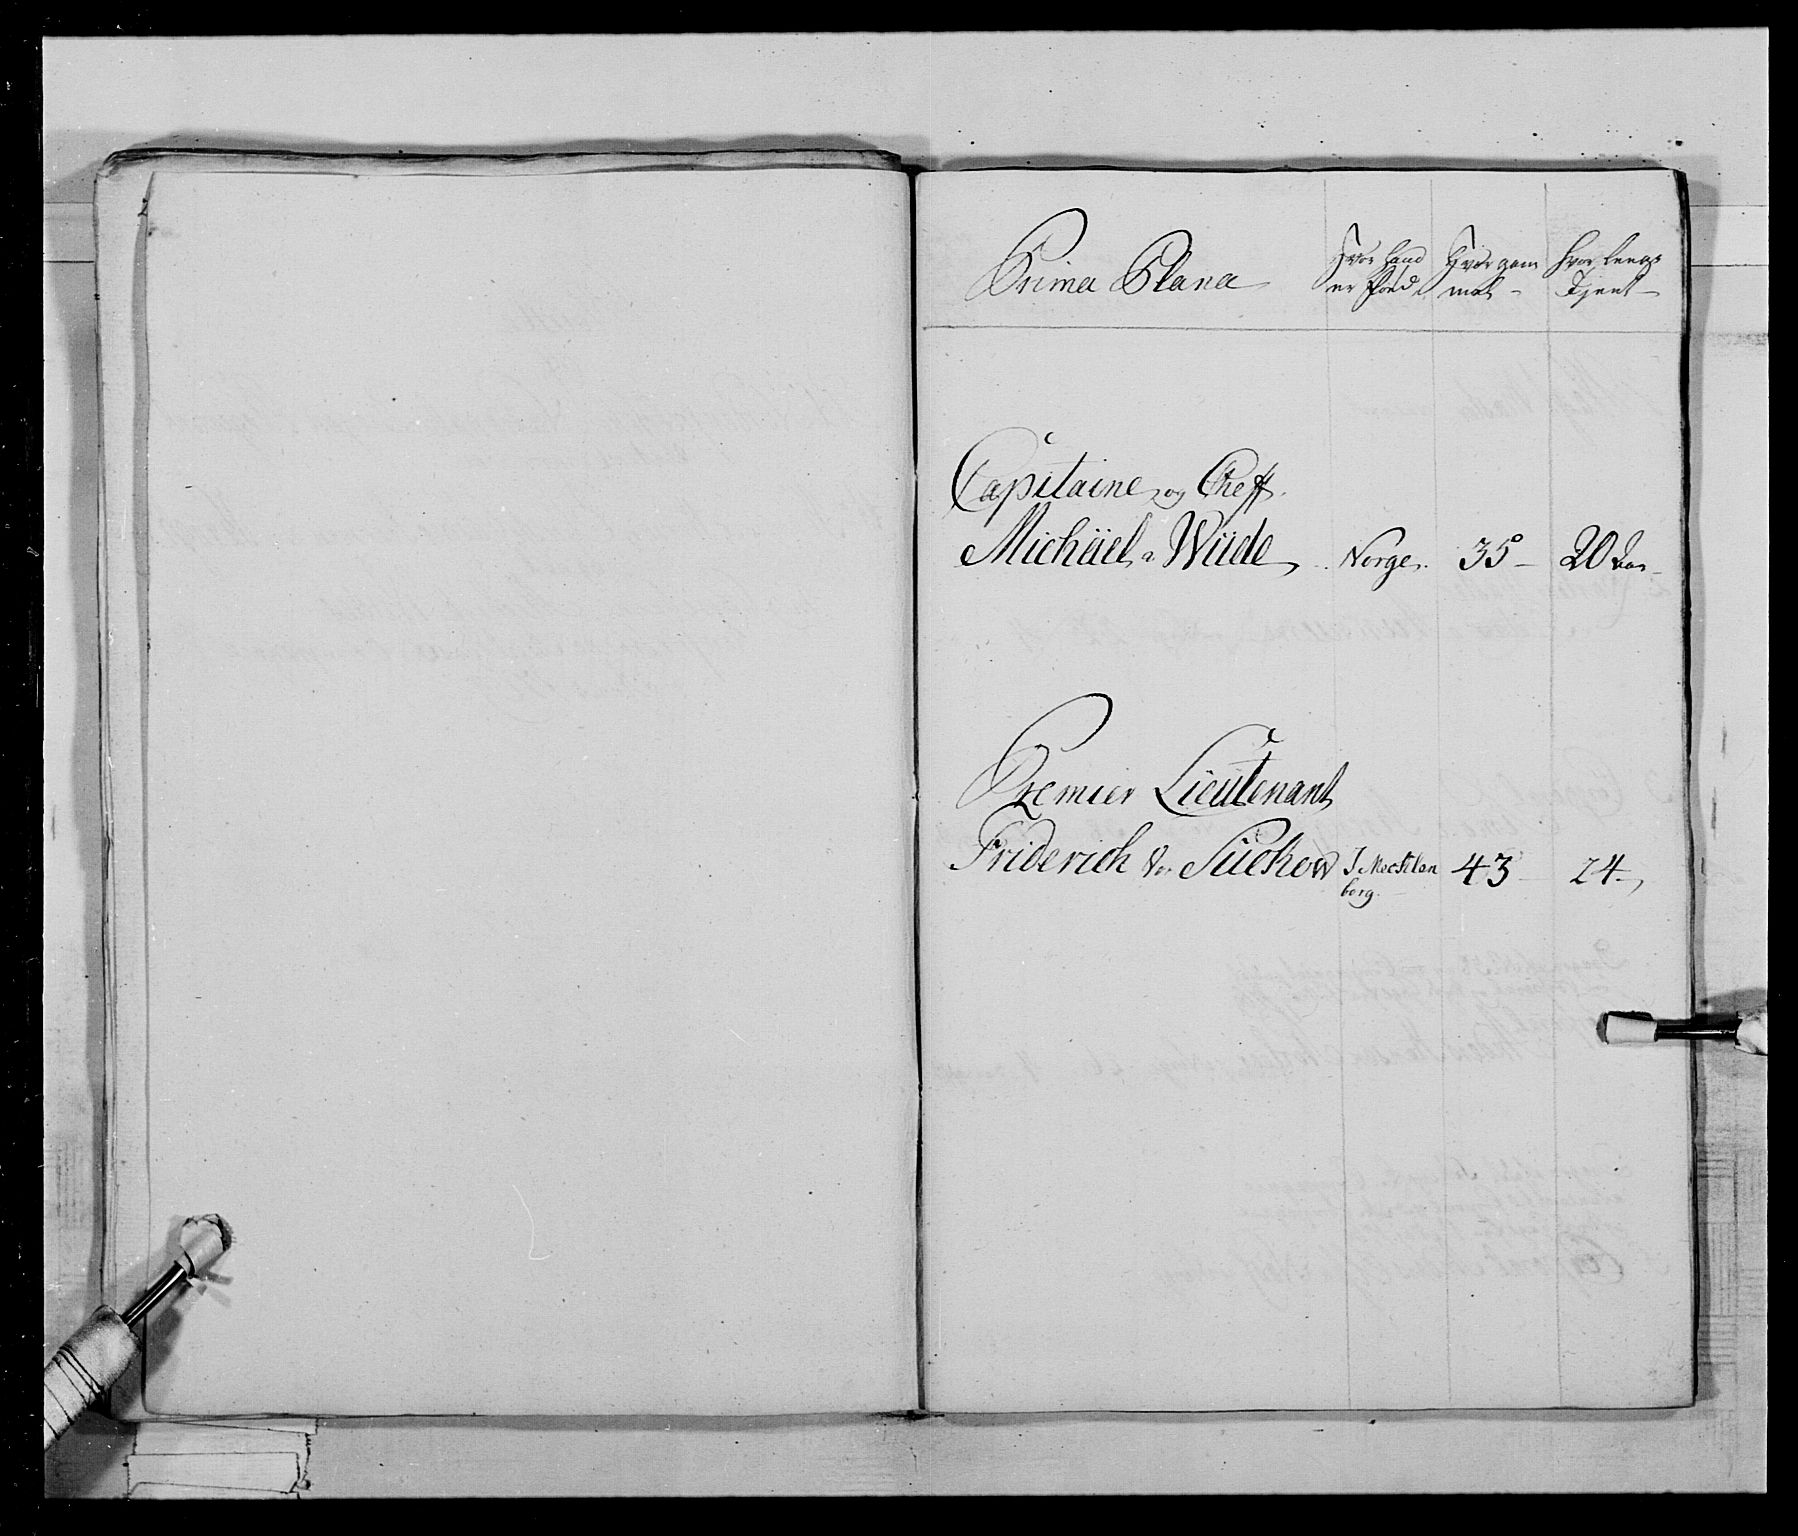 Prima Plana
Hvor hand er Föd
Hvor gam mel
Hvor lenge Tient
Capitaine og Cheff
Michäel a Wüde Norge 35 20 Aar
Premier Lieutenant
Friderich von Sückow I Mecklen 43 24
borg